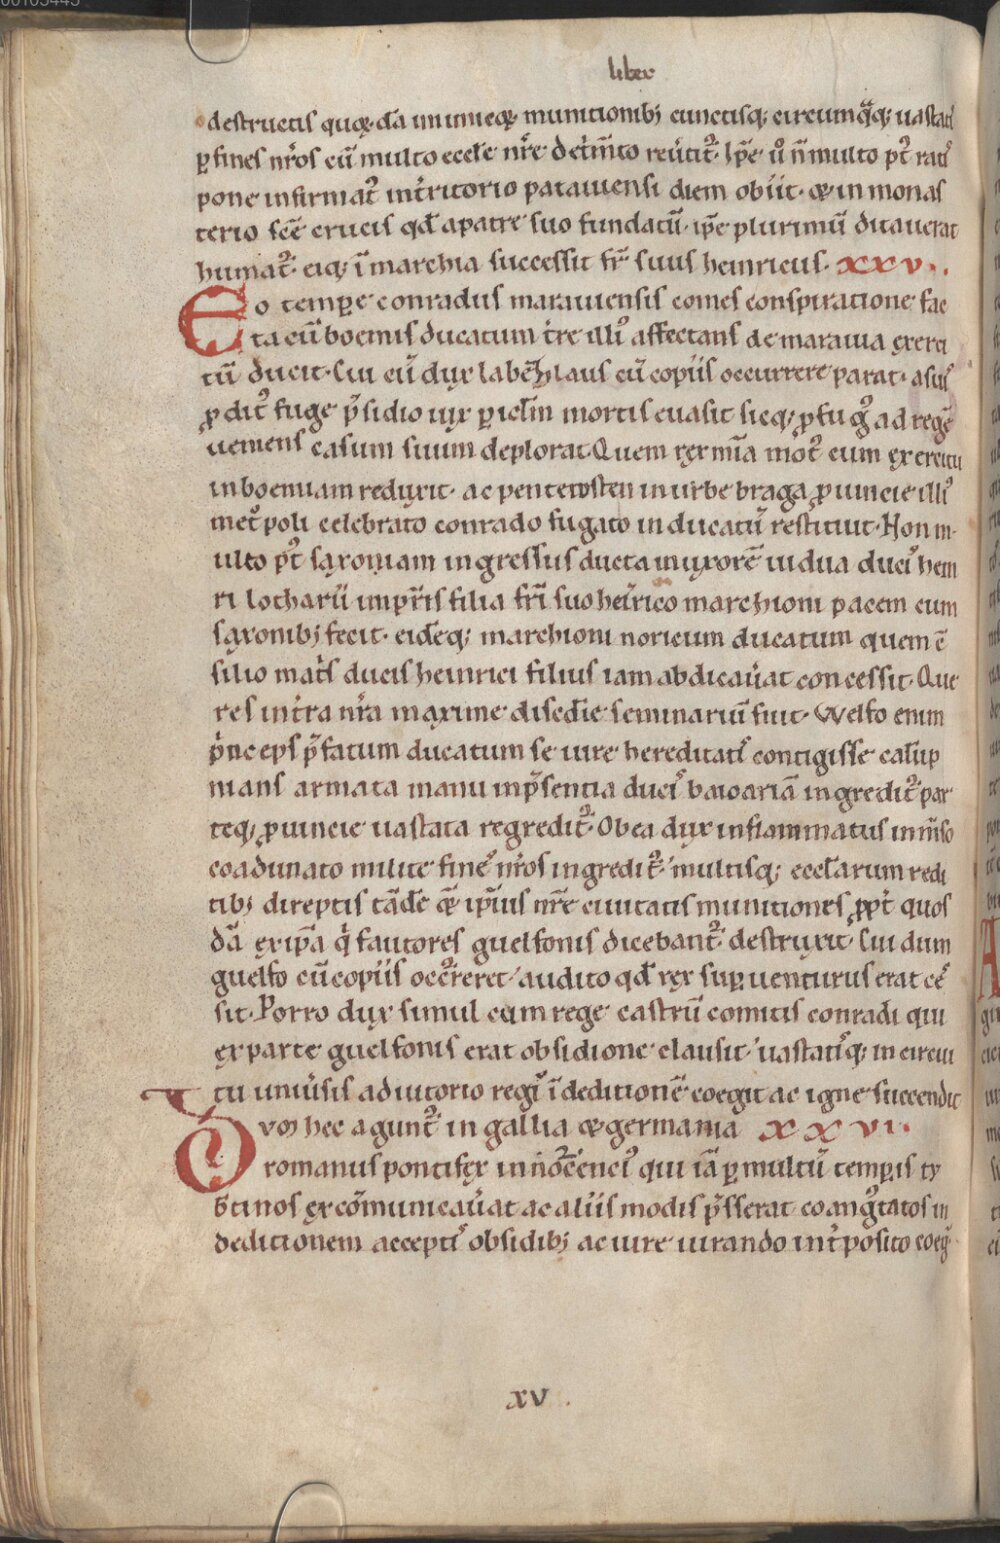 liber
destructis quoq; dā inimicoꝝ munitionib; cunctisq; circumq̄q; uastatˀ
ꝑ fines nr̄os cū multo eccl̄e nr̄e detͥm̄to reūtit᷑. Ip̄e ů n̄ multo pꝰt ratiſ
pone infirmat᷑ int̄ritorio patauienſi diem obiit. & in monaſ
terio ſc̄e crucis qd̄ a patre ſuo fundatū. ip̄e plurimū ditauerat
humat᷑. eiq; ī marchia ſucceſſit fr̄ ſuus heinricus. XXV.
Eo temꝑe conradus marauienſis comes conſpiratione fac
ta cū boemis ducatum t̄re illiꝰ affectans de marauia exerci
tū ducit. Cui cū dux labeẕlaus cū copiis occurrere parat. a ſuiſ
ꝓditꝰ fuge p̄ſidio uix ꝑiclm̄ mortis euaſit ſicq; ꝓfugꝰ ad regē
ueniens caſum ſuum deplorat. Quem rex mīa motꝰ cum exercitu
in boemiam reduxit. ac pentecoſten in urbe braga ꝓuincie illiꝰ
met᷑poli celebrato conrado fugato in ducatū reſtituit. Non m
ulto pꝰt ſaxoniam ingreſſus ducta in uxorē uidua duciſ hein
ri lotharii imꝑr̄is filia fr̄i ſuo heīrico marchioni pacem cum
ſaxonib; fecit. eideq; marchioni noricum ducatum quem ↄ̄
ſilio mat̄s ducis heinrici filius iam abdicaūat conceſſit. Que
res int̄ra nr̄a maxime diſcd̄ie ſeminariū fuit. Welfo enim
pͥnceps p̄fatum ducatum ſe iure hereditatiſ contigiſſe calūp
nians armata manu inp̄ſentia duciſ baioariā ingredit᷑. par
teq; ꝓuincie uaſtata regredit᷑. Ob ea dux inflammatus inm̄ſo
coadunato milite fineſ nr̄os ingredit᷑. multisq; eccl̄arum redi
tib; direptis tād̄e & ip̄ius nr̄e ciuitatis munitiones ꝓpt᷑ quoſ
dā exip̄a qͥ fautores guelfonis dicebant᷑. deſtruxit. Cui dum
guelfo cū copiis occ᷑reret. audito qd̄ rex ſuꝑuenturus erat ceſ
ſit. Porro dux ſimul cum rege caſtrū comitis conradi qui
ex parte guelfonis erat obſidione clauſit. uaſtatiſq; in circui
tu uniūſis adiutorio regiſ ī deditionē coegit ac igne ſuccendit
Dvm hec agunt᷑ in gallia & germania XXVI.
romanus pontifex innocēciꝰ qui iā ꝑ multū temꝑis ty
b̄tinos excōmunicaūat ac aliis modis p̄ſſerat coangꝰtatos in
deditionem acceptiſ obſidib; ac iure iurando int̄poſito coeg̓
XV.